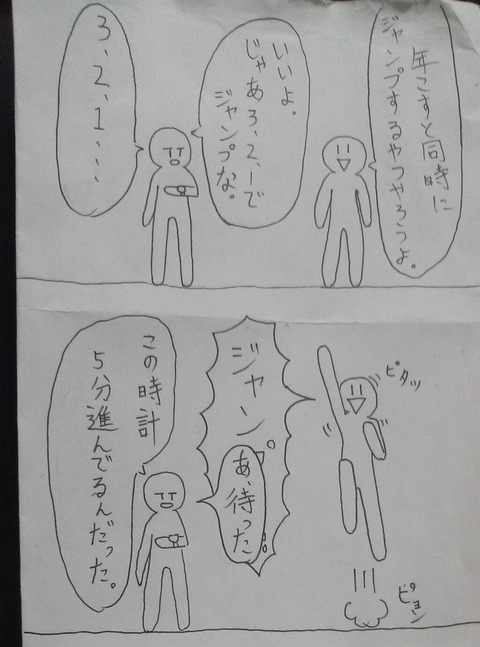 年こすと同時に
ジャンプするやつやろうよ。
いいよ。
じゃあ3、2、1で
ジャンプな。
3、2、1、、、
ピタッ
ジャンプ
あ、待った
ピョン
この時計
5分進んでるんだった。